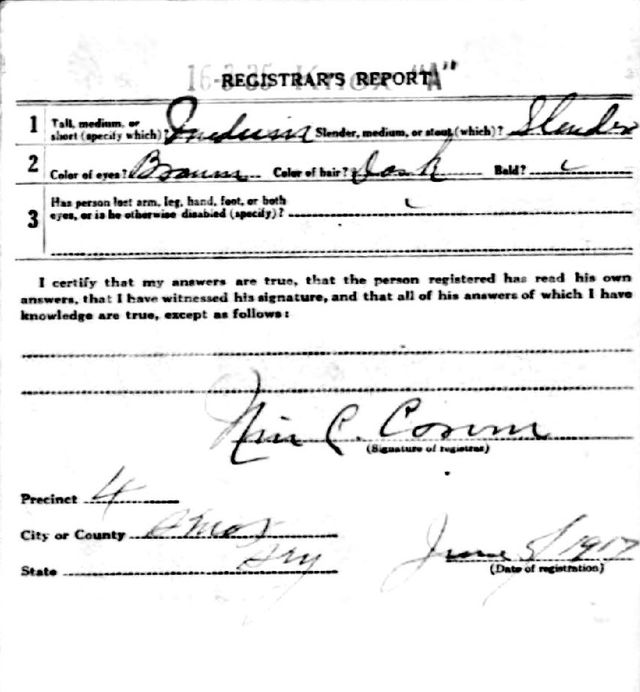 16-3-35 Knox "A"
REGISTRAR'S REPORT
1 Tall, medium, or short (specify which)? Medium Slender, medium, or stout (which)? Slender
2 Color of eyes? Brown Color of hair? Dark Bald?
3 Has person lost arm, leg, hand, foot, or both
eyes, or is he otherwise disabled (specify)?
I certify that my answers are true, that the person registered has read his own
answers, that I have witnessed his signature, and that all of his answers of which I have
knowledge are true, except as follows:
C.
(Signature of registrar)
Precinct 4
City or County Knox
State Ky
June 5/1917
(Date of registration)